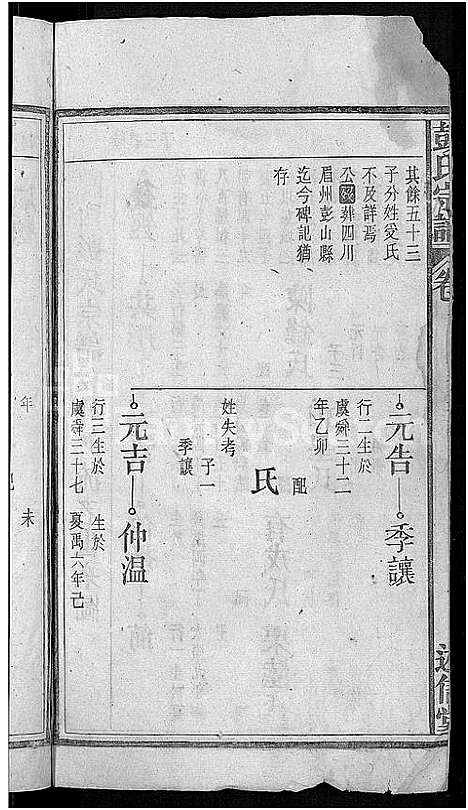 彭氏宗譜
卷
述信堂
其餘五十三
子分姓受氏
不及詳焉
公歿葬四川
眉州彭山縣
迄今碑記猶
存
元告
季讓
行二生於
虞舜三十二
年乙卯
配
氏
姓失考
子一
季讓
元吉
仲温
行三生於
虞舜三十七
生於
夏禹六年己
年
未